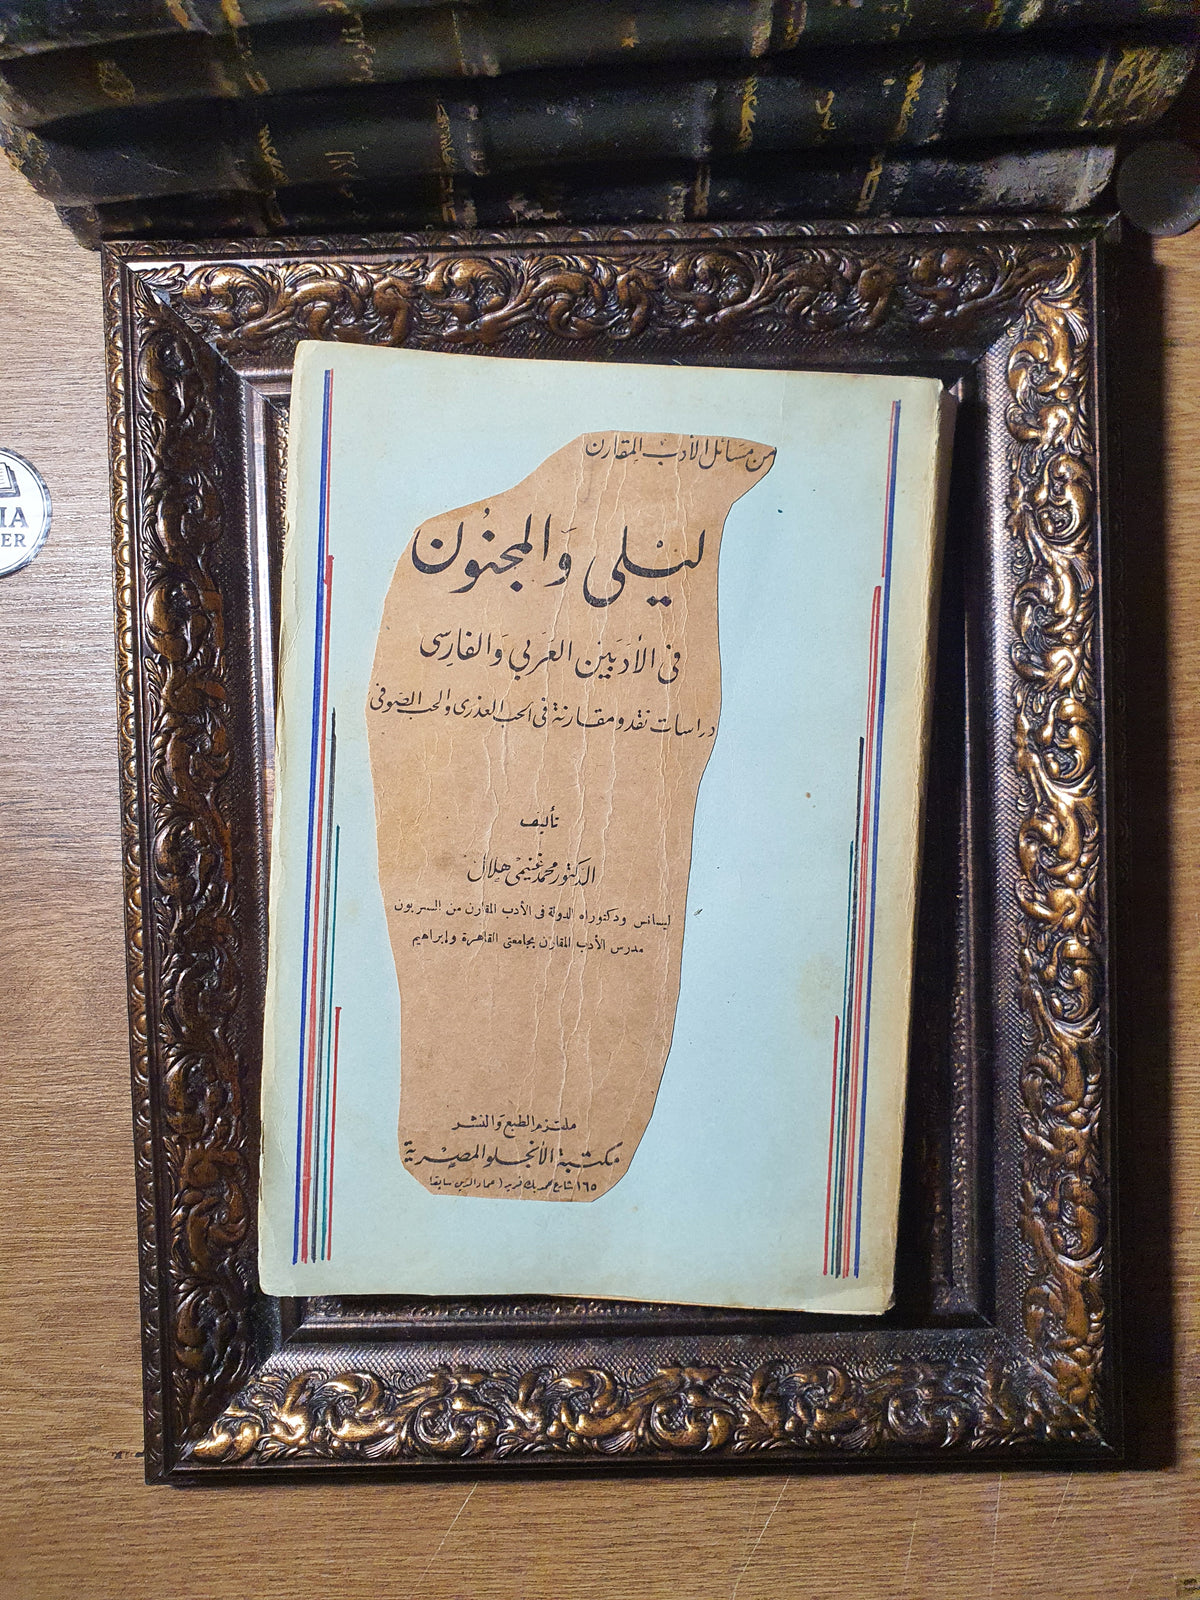 من مسائل الأدب المقارن
ليْلى وَالمجنُون
فى الأدَبَين العَرَبي وَالفارِسى
دراسات نقد ومقارنة فى الحب العذرى والحب الصوفى
تأليف
الدكتور محمد غنيمى هلال
ليسانس ودكتوراه الدولة فى الأدب المقارن من السربون
مدرس الأدب المقارن بجامعتى القاهرة وإبراهيم
ملتزم الطبع وَالنشر
مكتبة الأنجلو المصْرية
١٦٥ شارع محمد بك فريد (عماد الدين سابقا)
IA
ER